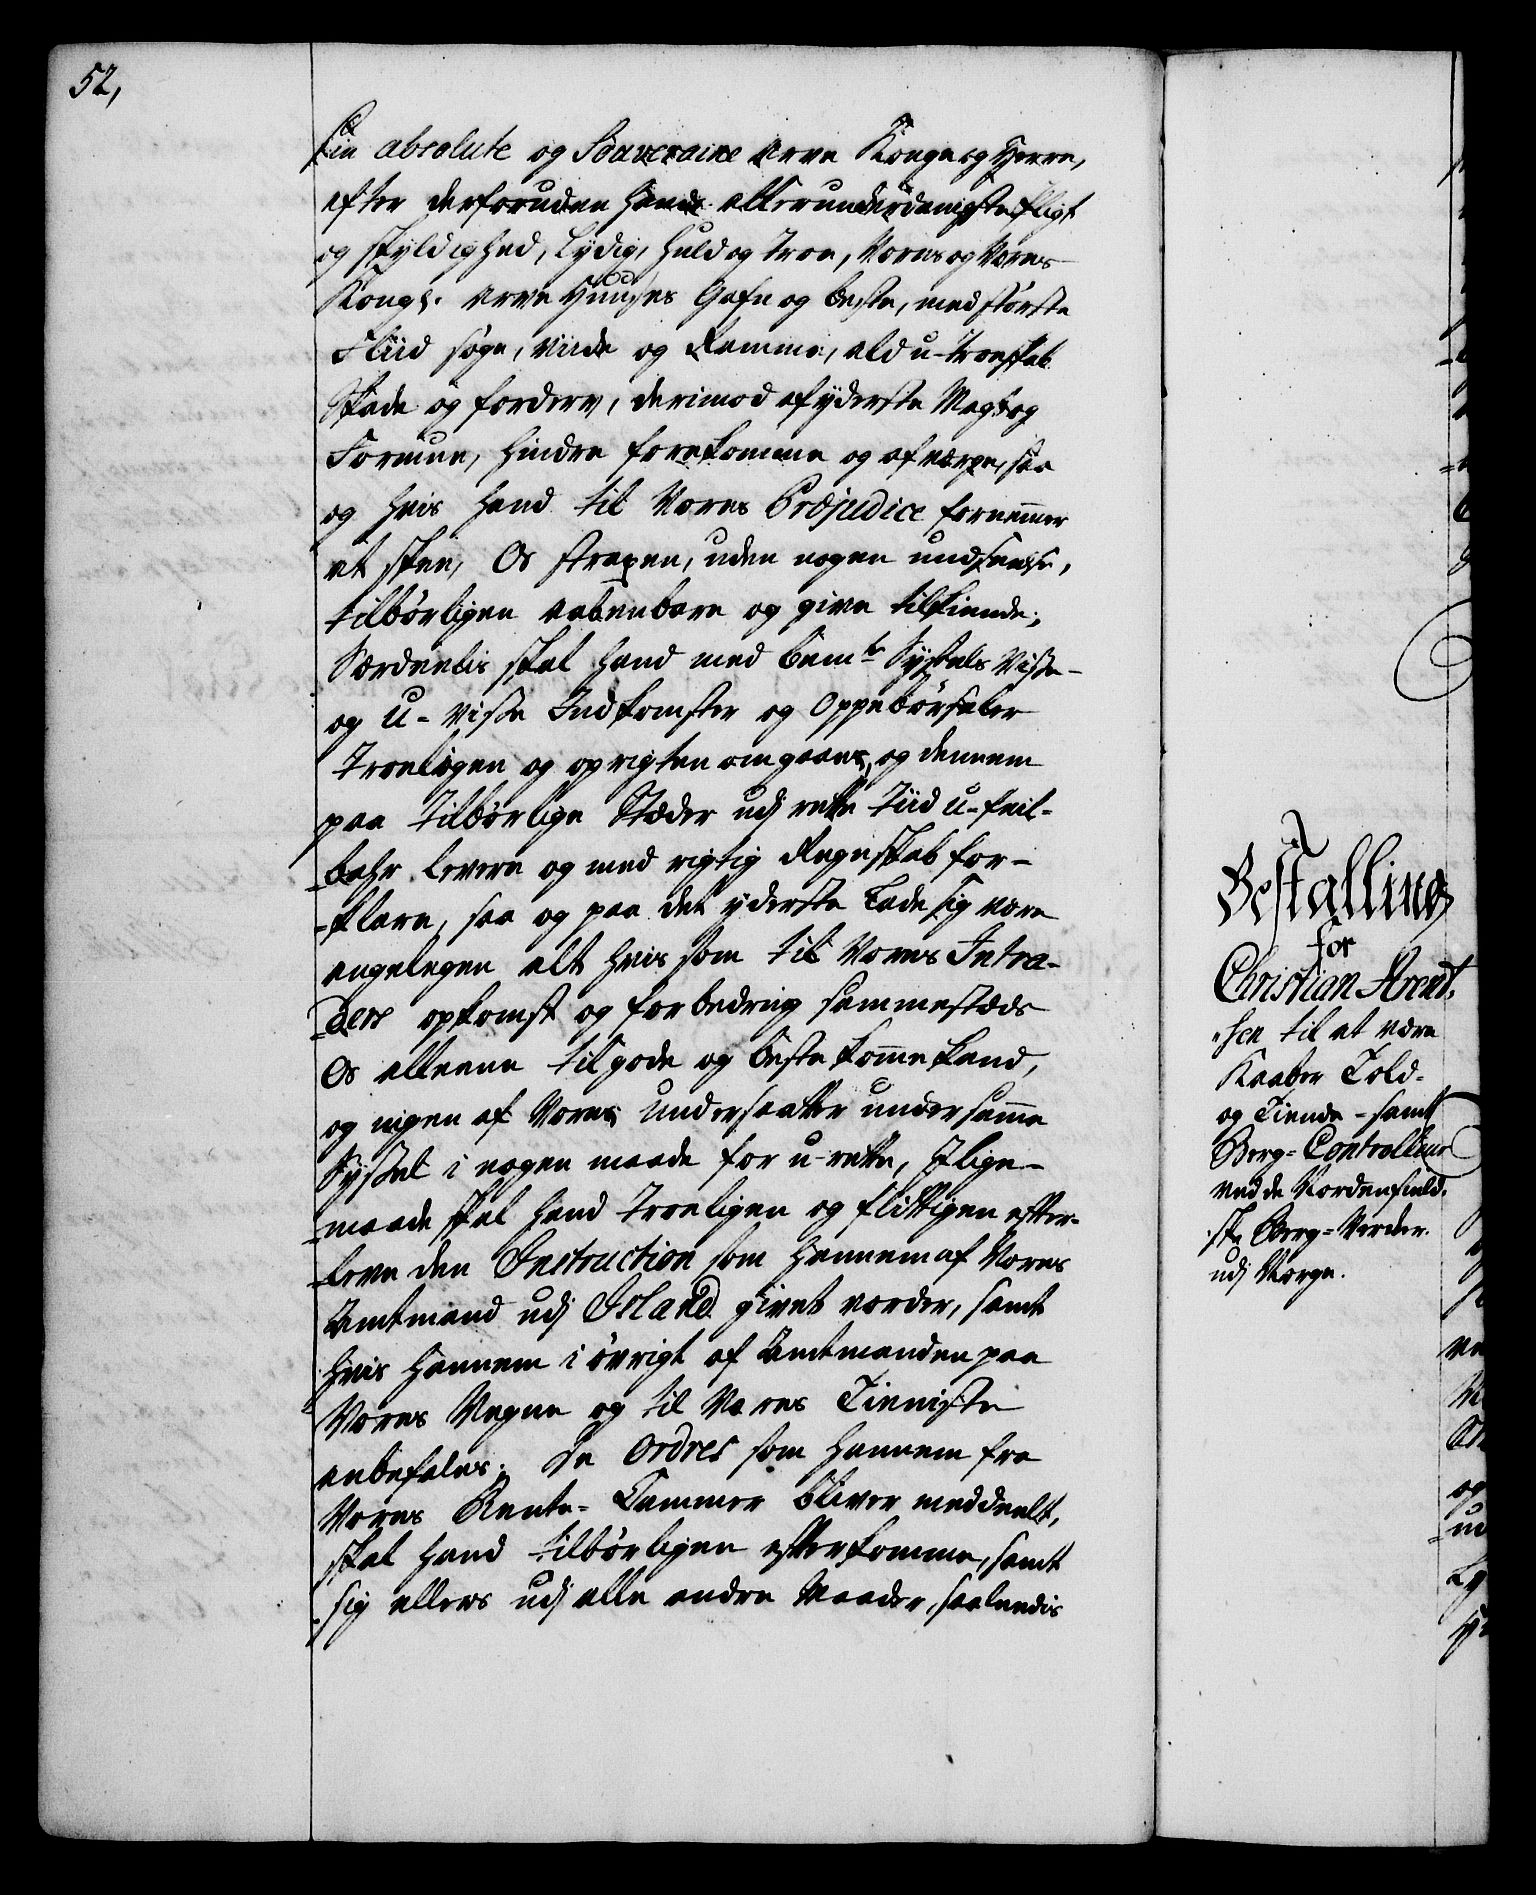 52,
Sin absolute og Souveraine Arve Konge og Herre,
efter derforuden hands allerunderdanigste Pligt
og skyldighed, Lydig, Huld og Troe, Vores og Vores
Kongl. Arve Huuses Gafn og beste, med største
Fliid søge, viide og Ramme, ald u-troeskab
Skade og forderv, derimod af yderste Magt og
Formue, hindre forekomme og afværge, saa
og hvis hand til Vores Præjudice fornemmer
at skee, Os straxen, uden nogen undseelse,
tilbørligen aabenbare og give tilkiende;
Særdeelis skal hand med bemte Syssels Visse-
og U-visse Indkomster og Oppebørseler
Troeligen og oprigten omgaaes, og dennem
paa tilbørlige Stæder udj rette Tiid u-feil-
-bahr levere og med rigtig Regnskab for-
-klare, saa og paa det yderste Lade sig være
angelegen alt hvis som til Vores Intra-
-ders opkomst og forbedring sammestæds
Os alleene til gode og beste komme kand,
og ingen af Vores Undersaatter under samme
Syssel i nogen maade for u-rette, Ilige-
-maade skal hand Troeligen og flittigen efter-
-leve den Instruction som hannem af Vores
Amtmand udj Island givet vorder, samt
hvis hannem i øvrigt af Amtmanden paa
Vores Vegne og til Vores Tienniste
anbefales. De Ordres som hannem fra
Vores Rente-Cammer bliver meddeelt,
skal hand tilbørligen efterkomme, samt
sig ellers udj alle andre Maader, saaleedis
Bestalling
for
Christian Arent,
-sen til at være
Kaaber Told-
og Tiende-samt
Berg-Controlleur
ved de Nordenfield-
-ske Berg-Verker
udj Norge.